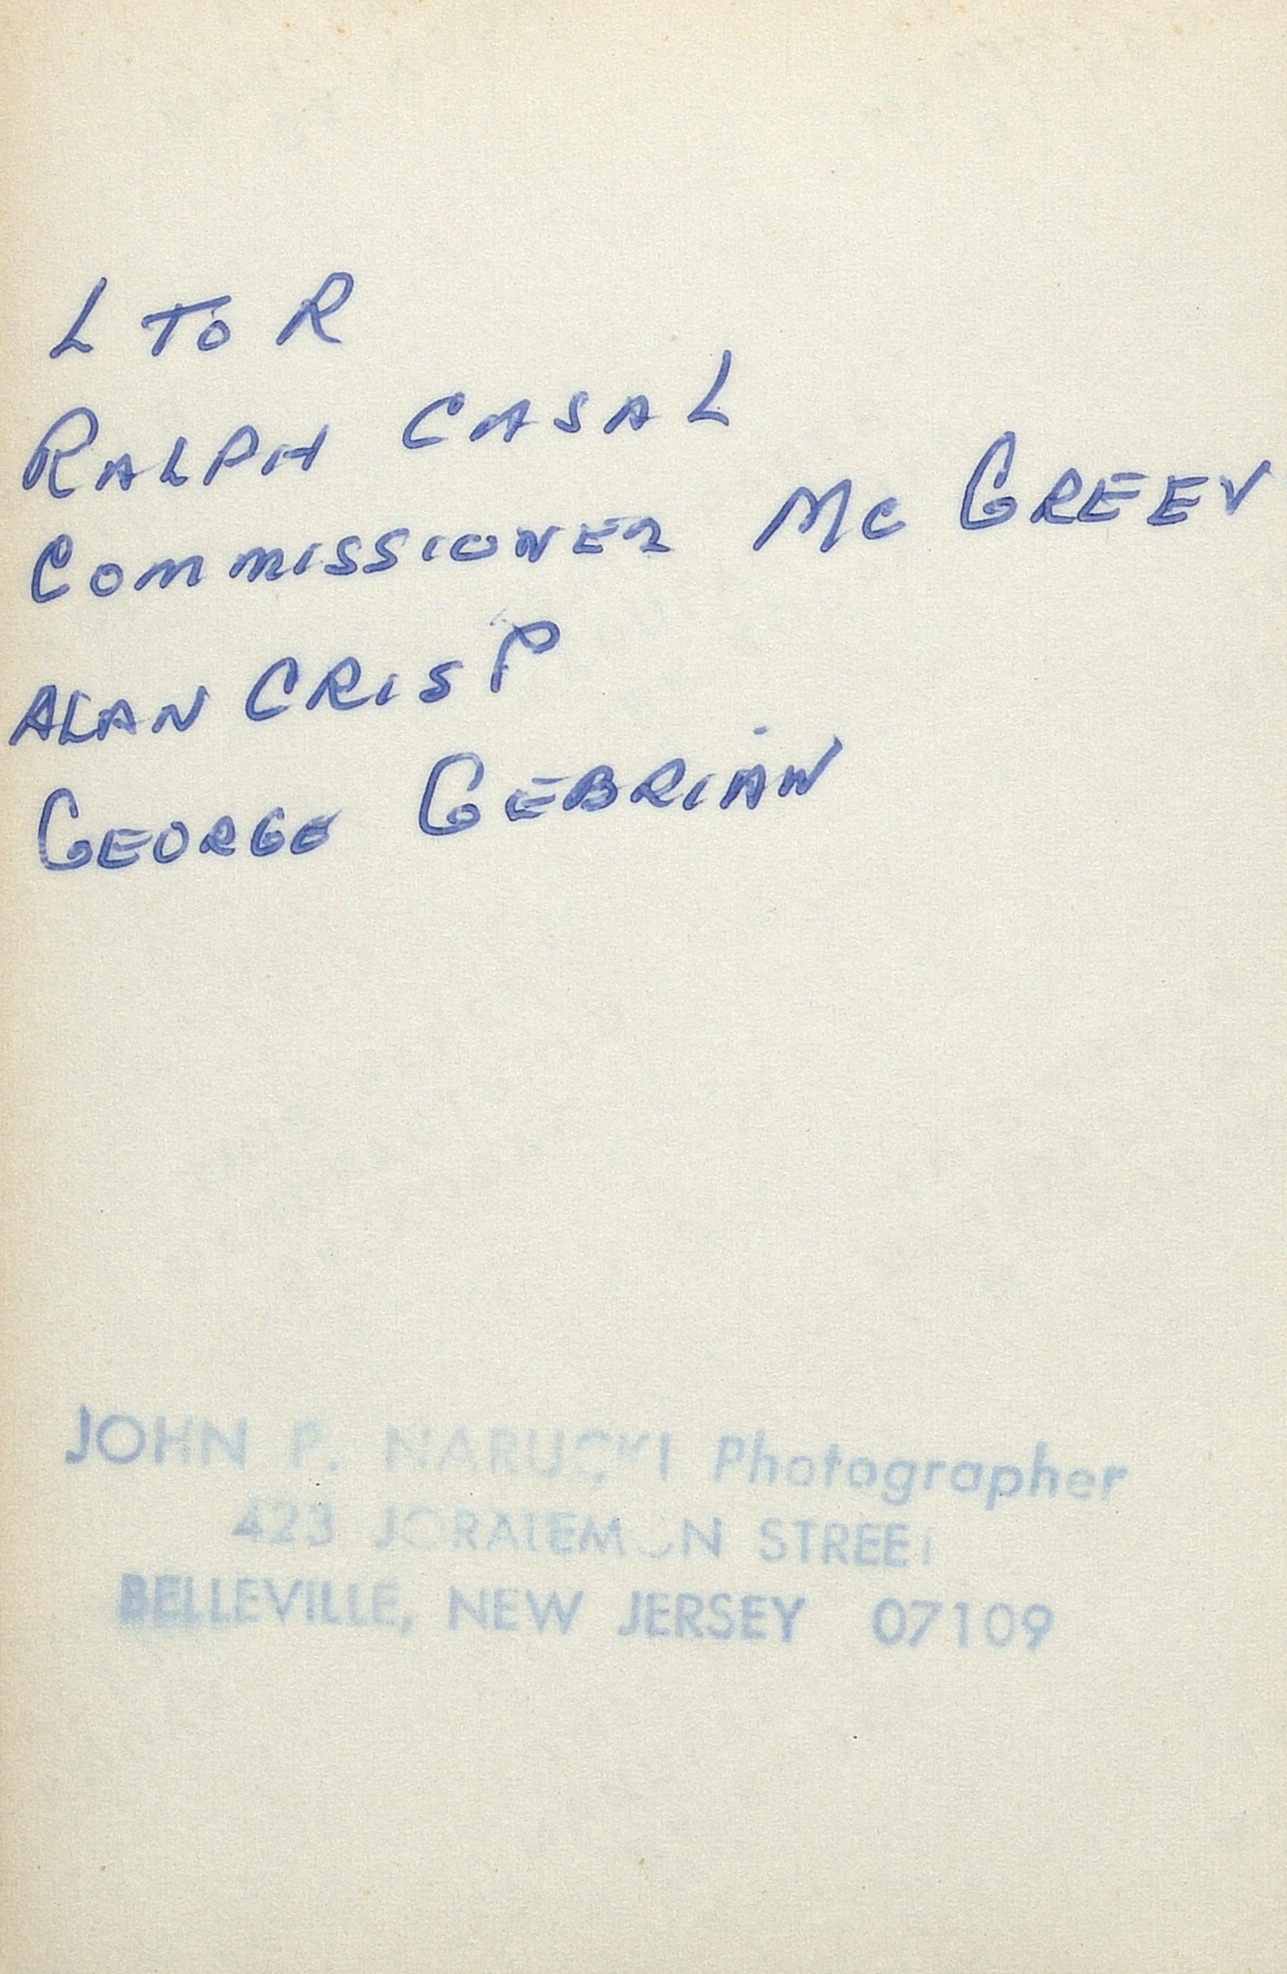 L TO R
RALPH CASAL
COMMISSIONER Mc GREEV
ALAN CRISP
GEORGE GEBRIAN
JOHN P. NARUCKI Photographer
423 JORALEMON STREET
BELLEVILLE, NEW JERSEY 07109